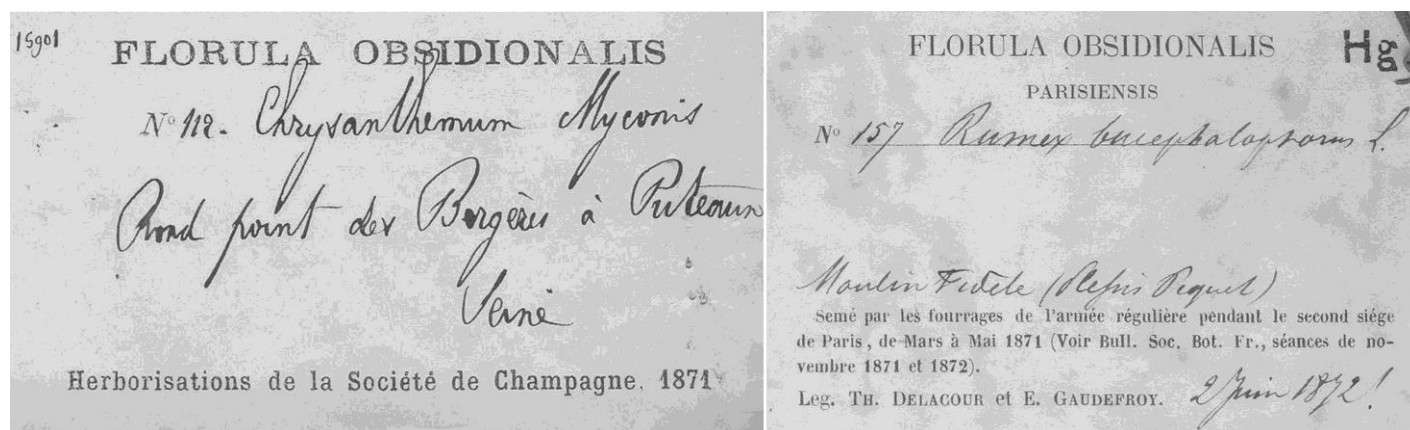 15901
FLORULA OBSIDIONALIS
No 112. Chrysanthemum Myconis
Rond point des Bergères à Puteaux
Seine
Herborisations de la Société de Champagne, 1871
FLORULA OBSIDIONALIS
Hg
PARISIENSIS
No 157 Rumex bucephalophorus L.
Moulin Fidele (Plessis Piquet)
Semé par les fourrages de l'armée régulière pendant le second siége
de Paris, de Mars à Mai 1871 (Voir Bull. Soc. Bot. Fr., séances de no-
vembre 1871 et 1872).
Leg. TH. DELACOUR et E. GAUDEFROY. 2 Juin 1872!